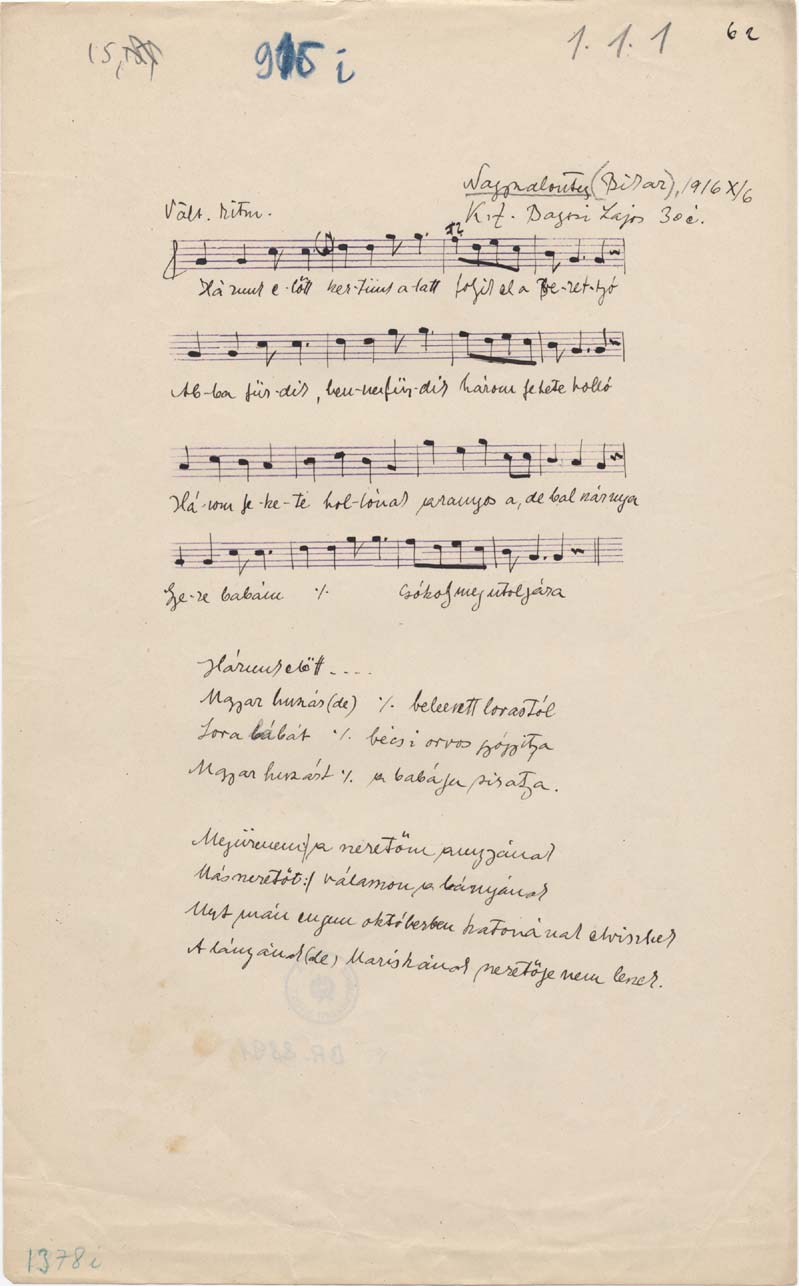 915 i
1. 1. 1
62
Nagyszalonta (Bihar), 1916 X/6
Vált. ritm.
Kif. Bagosi Lajos 30 é.
Házunk e-lőtt ker-tünk a-latt folyik el a Be-ret-tyó
Ab-ba für-dik, ben-ne für-dik három fekete holló
Há-rom fe-ke-te hol-lónak aranyos a, de bal szárnya
Gye-re babám ٪ csókolj meg utoljára
Házunk előtt ....
Magyar huszár (de) ٪ beleesett lovastól
Lova lábát ٪ bécsi orvos gyógyítja
Magyar huszárt ٪ a babája siratja.
Megüzenem :/ a szeretőm anyjának
Más szeretőt :/ válasszon a lányának
Mert már engem októberben katonának elvisznek
A lányának (de) Mariskának szeretője nem leszek.
1378 i